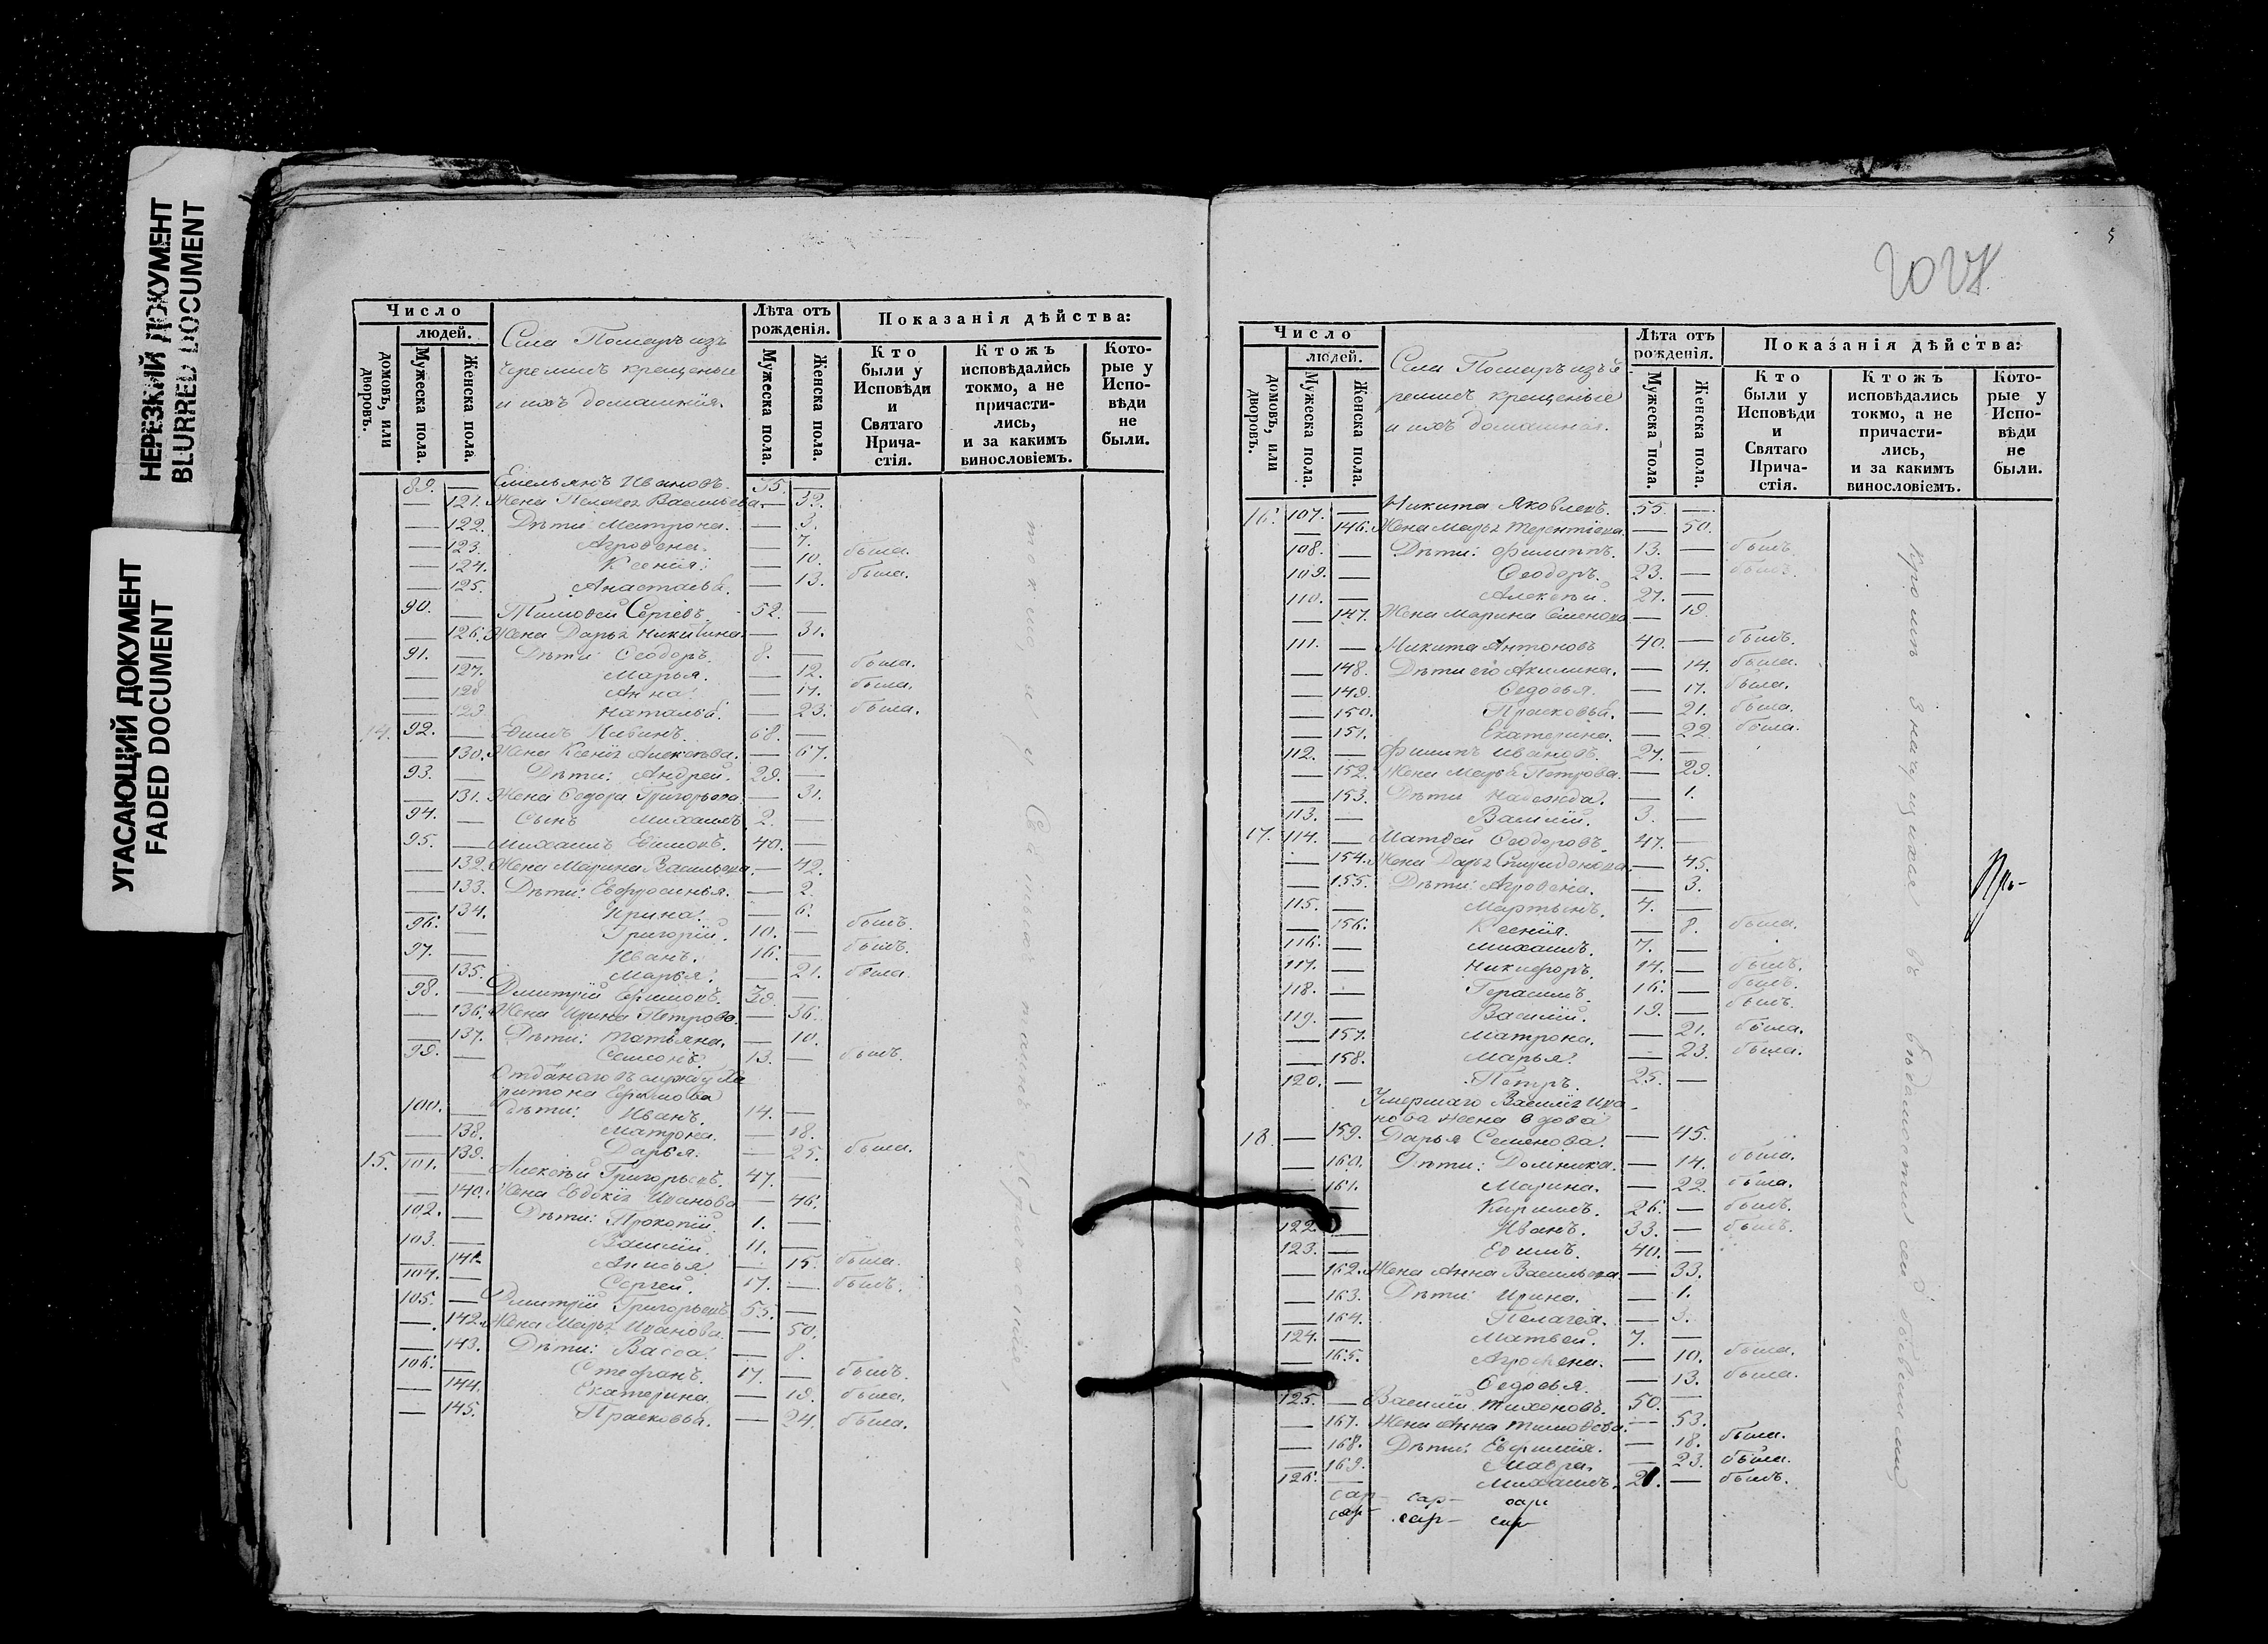 НЕРЕЗКИЙ ДОКУМЕНТ
BLURRED DOCUMENT
УГАСАЮЩИЙ ДОКУМЕНТ
FADED DOCUMENT
Число
людей.
домовъ, или дворовъ.
Мужеска пола.
Женска пола.
Села Помаръ изъ
Черемисъ крещеные
и ихъ домашнія.
Лѣта отъ рожденія.
Мужеска пола.
Женска пола.
Показанія дѣйства:
Кто были у Исповѣди и Святаго Прича-стія.
Ктожъ исповѣдались токмо, а не причасти-лись, и за какимъ винословіемъ.
Кото-рые у Испо-вѣди не были.
89. — Емельянъ Ивановъ. 35. —
— 121. Жена Пелагея Васильева. — 32.
— 122. Дѣти: Матрона. — 3.
— 123. Агрофена. — 7.
— 124. Ксенія. — 10. была.
— 125. Анастасья. — 13. была.
90. — Тимофей Сергеевъ. 52. —
— 126. Жена Дарья Никитина. — 31.
91. — Дѣти: Ѳеодоръ. 8. —
— 127. Марья. — 12. была.
— 128 Анна. — 17. была.
— 129 Наталья. — 23. была.
14. 92. — 68. —
— 130. Жена Ксенія Алексѣева. — 67.
93. — Дѣти: Андрей. 29. —
— 131. Жена Ѳедора Григорьева. — 31.
94. — Сынъ Михаилъ 2. —
95. — Михаилъ Ефимовъ. 40. —
— 132. Жена Марина Васильева. — 42.
— 133. Дѣти: Ефросинья. — 2.
— 134. Ирина. — 6.
96. — Григорій. 10. — былъ.
97. — Иванъ. 16. — былъ.
— 135. Марья. — 21. была.
98. — Дмитрій Ефимовъ. 39. —
— 136. Жена Ирина Петрова. — 36.
— 137. Дѣти: Татьяна. — 10.
99. — Семенъ. 13. — былъ.
Отданаго въ службу Ха
ритона Ефимова
100. — Дѣти: Иванъ. 14. —
— 138. Матрона. — 18.
— 139. Дарья. — 25. была.
15. 101. — Алексѣй Григорьевъ. 47. —
— 140. Жена Евдокія Иванова — 46.
102. — Дѣти: Прокопій. 1. —
103. — Василій. 11. —
— 141. Анисья. — 15. была.
104. — Сергей. 17. — былъ.
105. — Дмитрій Григорьевъ 55. —
— 142. Жена Марья Иванова. — 50.
— 143. Дѣти: Васса. — 8.
106. — Стефанъ. 17. — былъ.
— 144. Екатерина. — 19. была.
— 145. Прасковья. — 24. была.
5
Число
людей.
домовъ, или дворовъ.
Мужеска пола.
Женска пола.
Села Помаръ изъ Че
ремисъ крещеные
и ихъ домашнія.
Лѣта отъ рожденія.
Мужеска пола.
Женска пола.
Показанія дѣйства:
Кто были у Исповѣди и Святаго Прича-стія.
Ктожъ исповѣдались токмо, а не причасти-лись, и за какимъ винословіемъ.
Кото-рые у Испо-вѣди не были.
16. 107. — Никита Яковлевъ. 55. —
— 146. Жена Марья Терентіева — 50.
108. — Дѣти: Филиппъ. 13. — былъ.
109. — Ѳеодоръ. 23. — былъ.
110. — Алексѣй. 27. —
— 147. Жена Марина Семенова — 19.
111. — Никита Антоновъ 40. — былъ.
— 148. Дѣти его Акилина. — 14. была.
— 149. Ѳедосья. — 17. была.
— 150. Прасковья. — 21. была.
— 151. Екатерина. — 22. была.
112. — Филипъ Ивановъ. 27. —
— 152. Жена Марья Петрова. — 29.
— 153. Дѣти Надежда. — 1.
113. — Василій. 3. —
17. 114. — Матвей Ѳеодоровъ. 47. —
— 154. Жена Дарья Спиридонова. — 45.
— 155. Дѣти: Агрофена. — 3.
115. — Мартынъ. 4. —
— 156. Ксенія. — 8. была.
116. — Михаилъ. 7. —
117. — Никифоръ. 14. — былъ.
118. — Герасимъ. 16. — былъ.
119. — Василій. 19. — былъ.
— 157. Матрона. — 21. была.
— 158. Марья. — 23. была.
120. — Петръ. 25. —
Умершаго Василія Ива
нова жена вдова
18. — 159. Дарья Семенова. — 45.
— 160. Дѣти: Домника. — 14. была.
— 161. Марина. — 22. была.
— Кирилъ. 26. — былъ.
122. — Иванъ. 33. — былъ.
123. — Ефимъ. 40. —
— 162. Жена Анна Васильева. — 33.
— 163. Дѣти: Ирина. — 1.
— 164. Пелагея. — 3.
124. — Матвей. 7. —
— 165. Агрофена. — 10. была.
Ѳедосья. — 13. была.
125. — Василій Тихоновъ. 50. —
— 167. Жена Анна Тимофеева. — 53.
— 168. Дѣти: Евфимія. — 18. была.
— 169. Мавра. — 23. была.
126. — Михаилъ. 21. — былъ.
токмо, не у Святыхъ
кромѣ значущихся въ вѣдомости сей